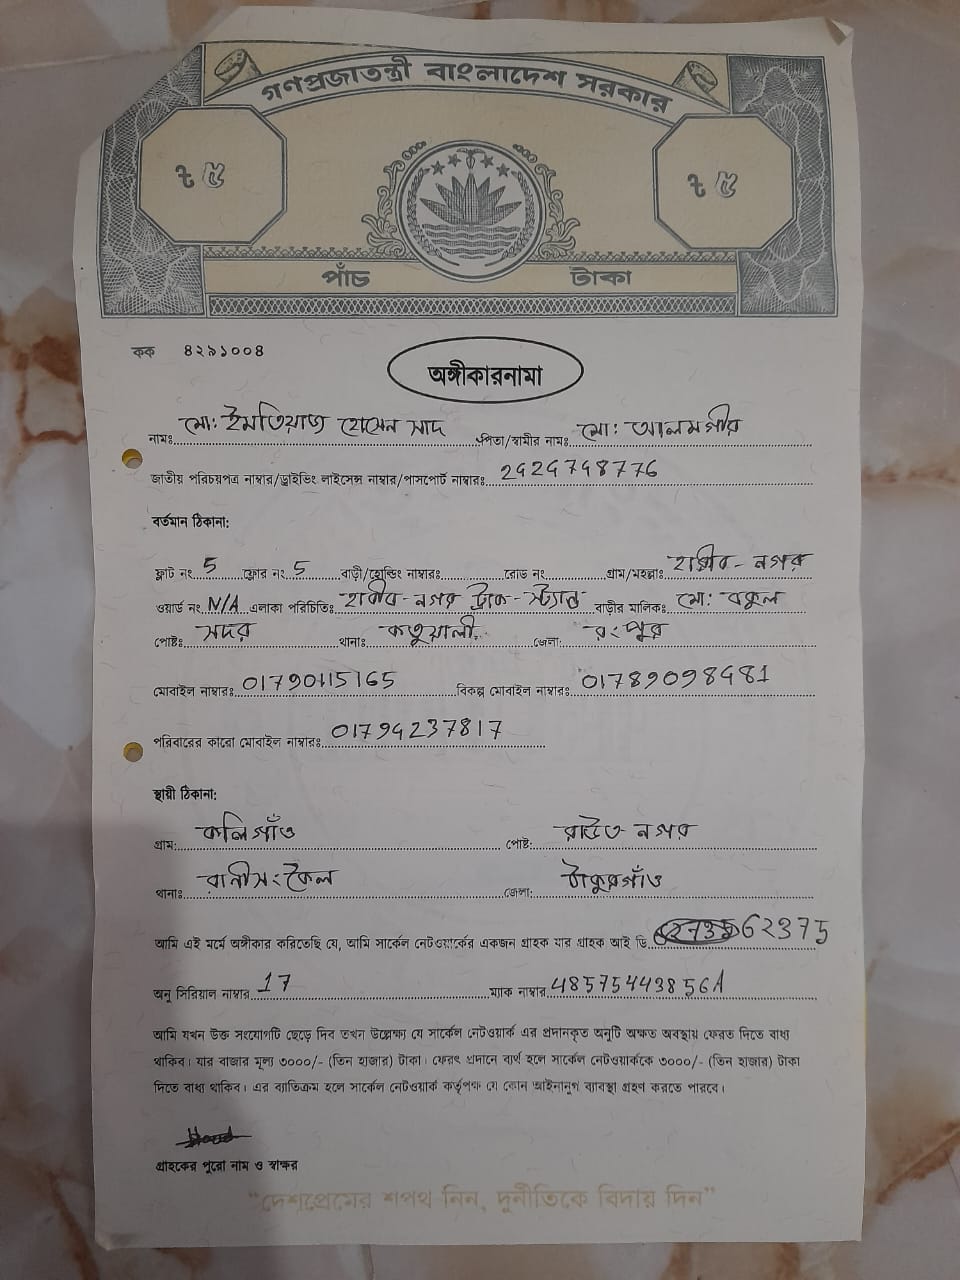 গণপ্রজাতন্ত্রী বাংলাদেশ সরকার
৳ ৫ ৳ ৫
পাঁচ টাকা
কক ৪২৯১০০৪
অঙ্গীকারনামা
নামঃ মো: ইমতিয়াজ হোসেন সাদ পিতা/স্বামীর নামঃ মো: আলমগীর
জাতীয় পরিচয়পত্র নাম্বার/ড্রাইভিং লাইসেন্স নাম্বার/পাসপোর্ট নাম্বারঃ 2424748776
বর্তমান ঠিকানা:
ফ্লাট নং 5 ফ্লোর নং 5 বাড়ী/হোল্ডিং নাম্বারঃ রোড নং গ্রাম/মহল্লাঃ হাবিব-নগর
ওয়ার্ড নং N/A এলাকা পরিচিতিঃ হাবিব-নগর ট্রাক-স্ট্যান্ড বাড়ীর মালিকঃ মো: বকুল
পোষ্টঃ সদর থানাঃ কতুয়ালী জেলা: রংপুর
মোবাইল নাম্বারঃ 01790115165 বিকল্প মোবাইল নাম্বারঃ 01789098481
পরিবারের কারো মোবাইল নাম্বারঃ 01794237817
স্থায়ী ঠিকানা:
গ্রাম: কলিগাঁও পোষ্ট: রাউত-নগর
থানাঃ রানীসংকৈল জেলা: ঠাকুরগাঁও
আমি এই মর্মে অঙ্গীকার করিতেছি যে, আমি সার্কেল নেটওয়ার্কের একজন গ্রাহক যার গ্রাহক আই ডি 62375
অনু সিরিয়াল নাম্বার 17 ম্যাক নাম্বার 48575443856A
আমি যখন উক্ত সংযোগটি ছেড়ে দিব তখন উল্লেক্ষ্য যে সার্কেল নেটওয়ার্ক এর প্রদানকৃত অনুটি অক্ষত অবস্থায় ফেরত দিতে বাধ্য
থাকিব। যার বাজার মূল্য ৩০০০/- (তিন হাজার) টাকা। ফেরৎ প্রদানে ব্যর্থ হলে সার্কেল নেটওয়ার্ককে ৩০০০/- (তিন হাজার) টাকা
দিতে বাধ্য থাকিব। এর ব্যাতিক্রম হলে সার্কেল নেটওয়ার্ক কর্তৃপক্ষ যে কোন আইনানুগ ব্যাবস্থা গ্রহণ করতে পারবে।
গ্রাহকের পুরো নাম ও স্বাক্ষর
"দেশপ্রেমের শপথ নিন, দুর্নীতিকে বিদায় দিন"